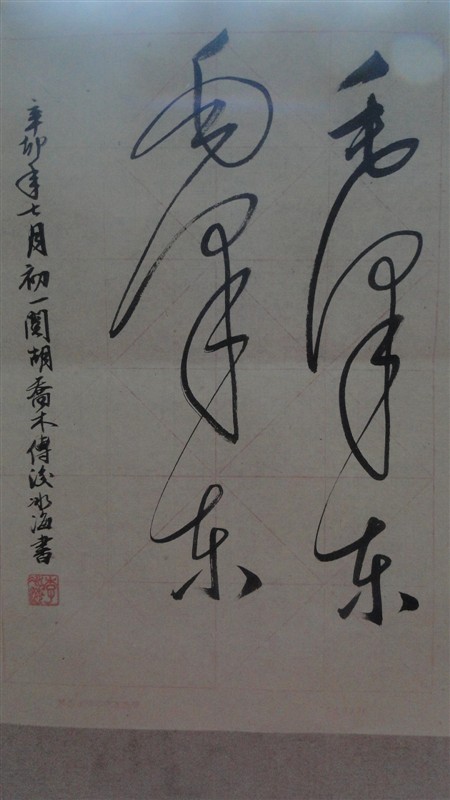 毛泽东
毛泽东
辛卯年七月初一阅胡乔木傅后冰海書